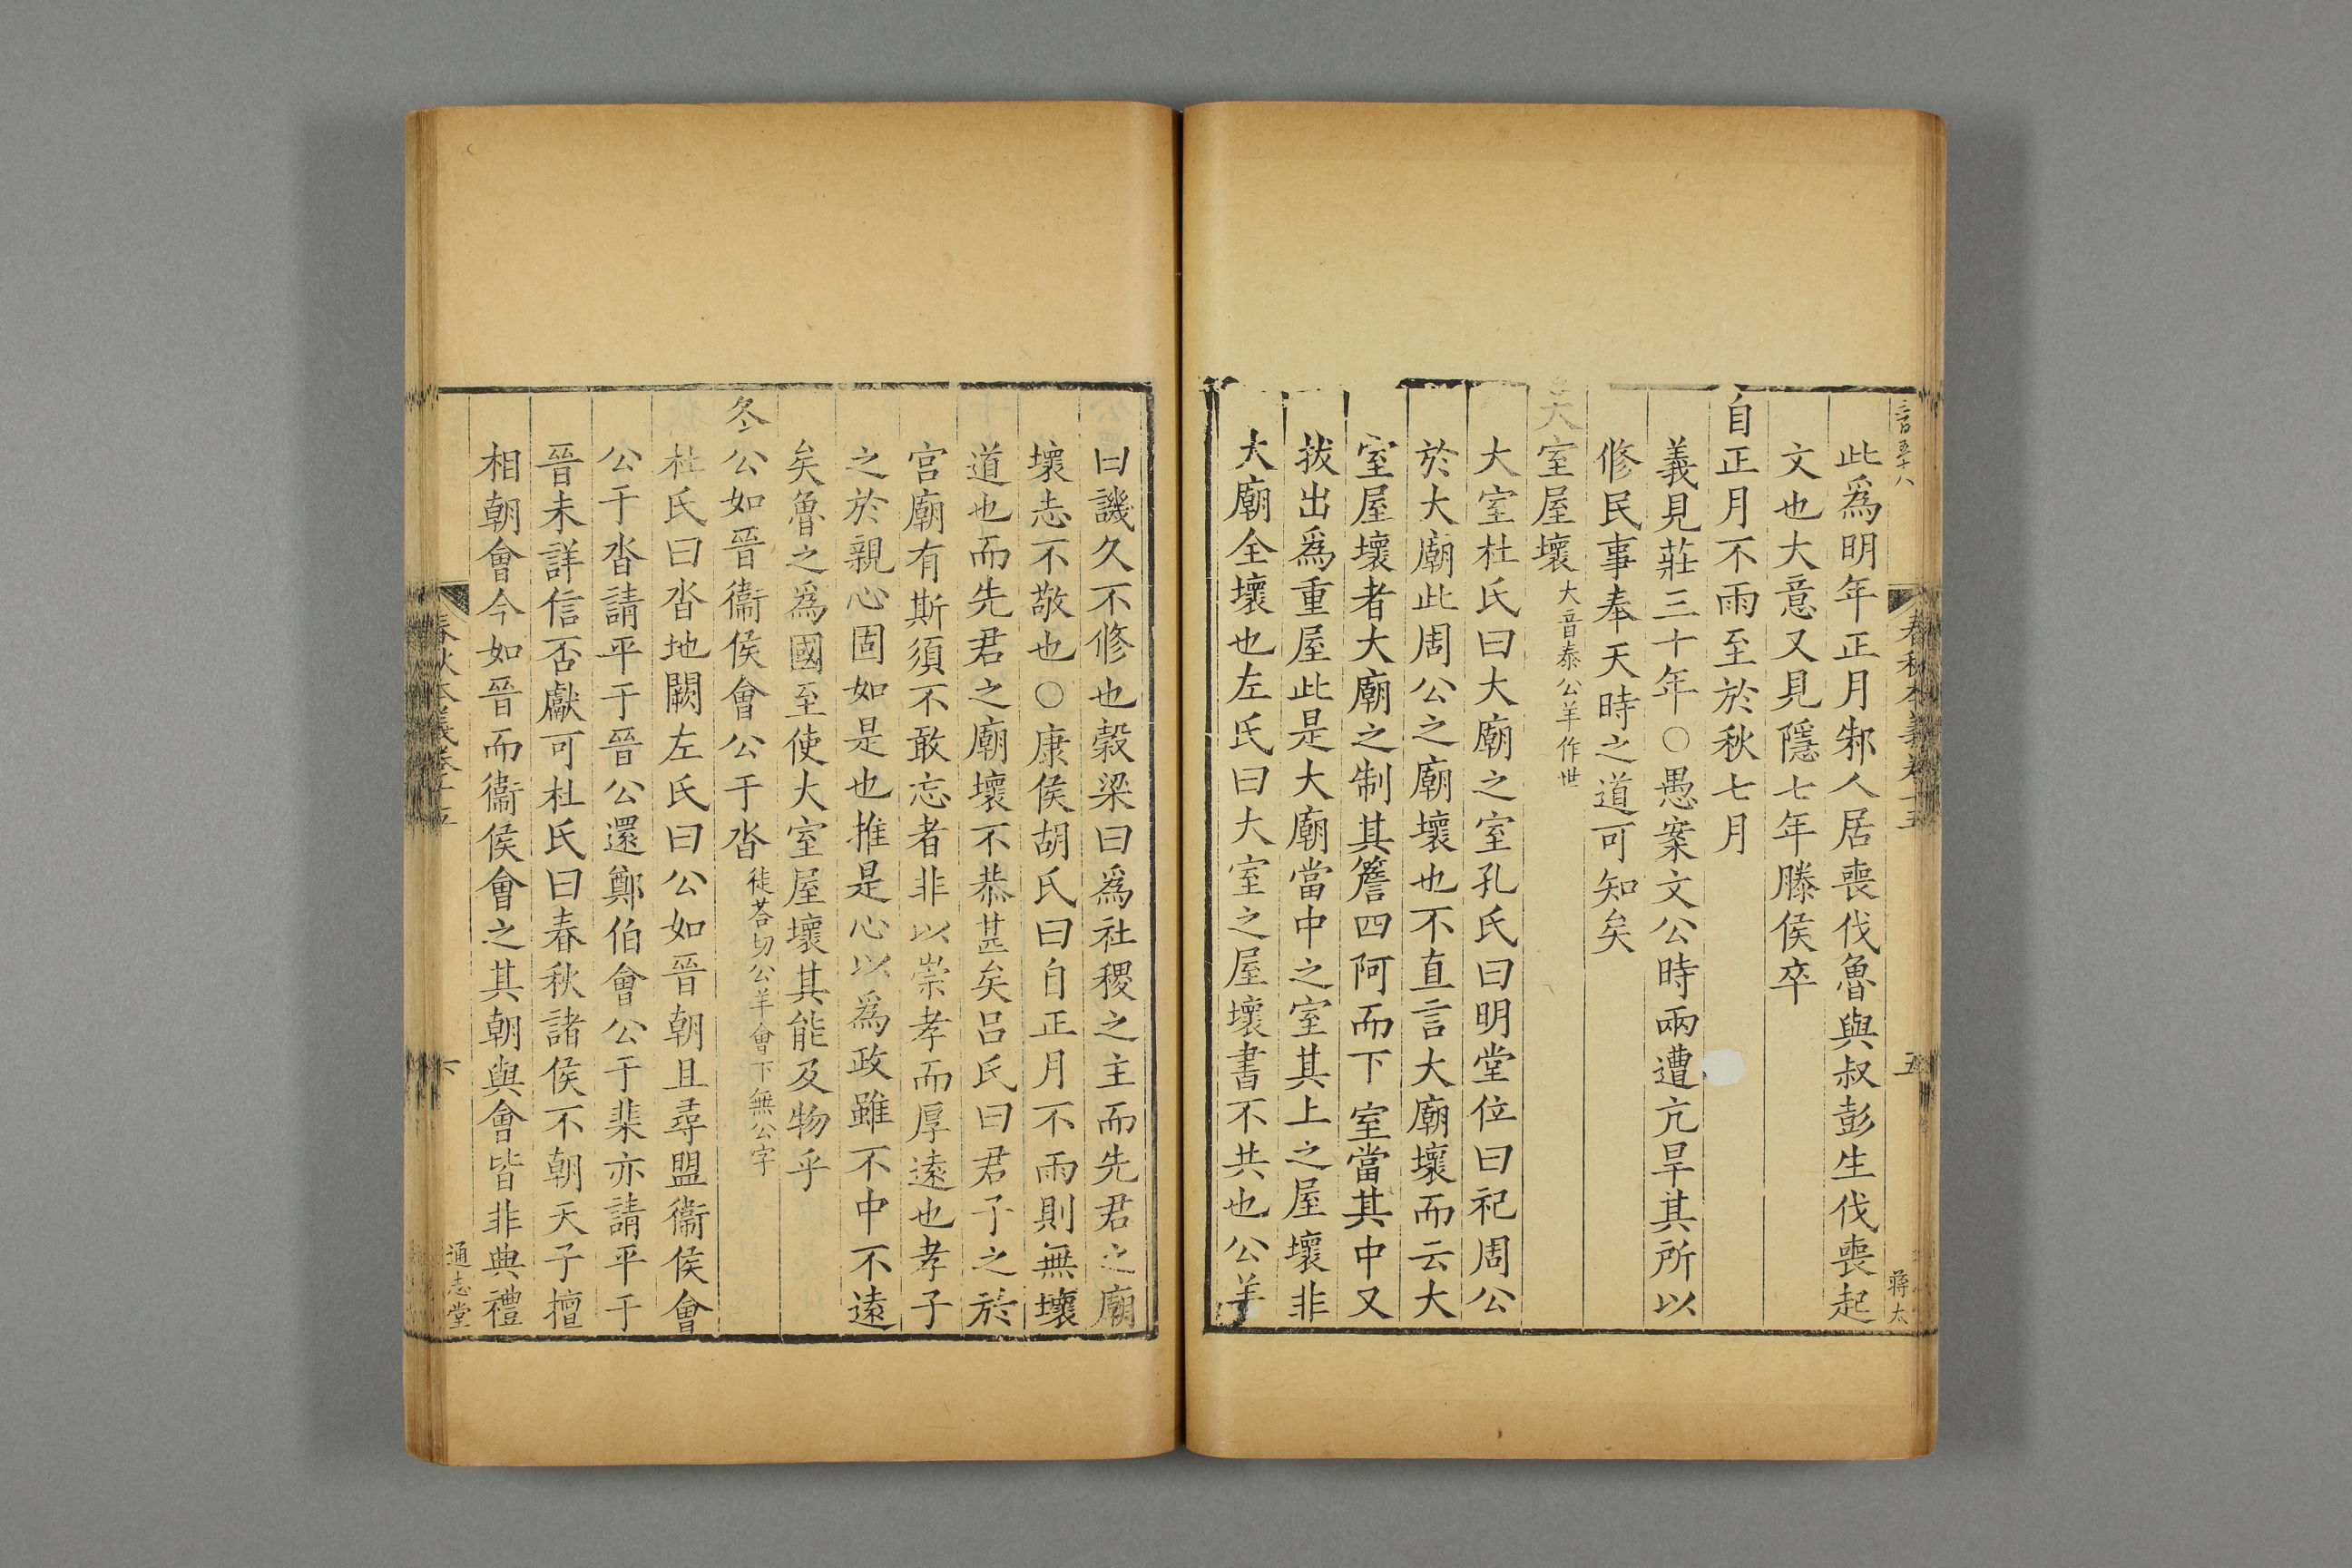 春秋本義卷十五
五
蔣太
此爲明年正月邾人居喪伐魯與叔彭生伐喪起
文也大意又見隱七年滕侯卒
自正月不雨至於秋七月
義見莊三十年○愚案文公時兩遭亢旱其所以
修民事奉天時之道可知矣
大室屋壞大音泰公羊作世
大室杜氏曰大廟之室孔氏曰明堂位曰祀周公
於大廟此周公之廟壞也不直言大廟壞而云大
室屋壞者大廟之制其簷四阿而下室當其中又
拔出爲重屋此是大廟當中之室其上之屋壞非
大廟全壞也左氏曰大室之屋壞書不共也公羊
曰譏久不修也穀梁曰爲社稷之主而先君之廟
壞志不敬也○康侯胡氏曰自正月不雨則無壞
道也而先君之廟壞不恭甚矣呂氏曰君子之於
宮廟有斯須不敢忘者非以崇孝而厚遠也孝子
之於親心固如是也推是心以爲政雖不中不遠
矣魯之爲國至使大室屋壞其能及物乎
冬公如晉衞侯會公于沓徒荅切公羊會下無公字
杜氏曰沓地闕左氏曰公如晉朝且尋盟衞侯會
公于沓請平于晉公還鄭伯會公于棐亦請平于
晉未詳信否獻可杜氏曰春秋諸侯不朝天子擅
相朝會今如晉而衞侯會之其朝與會皆非典禮
春秋本義卷十五
通志堂